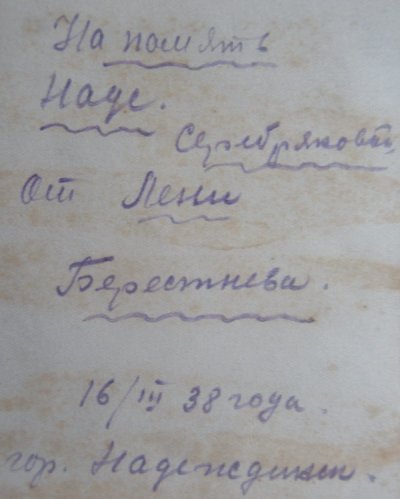 На память
Наде.
Серебряковой,
От Лени
Берестнева.
16/III 38 года.
гор. Надеждинск.